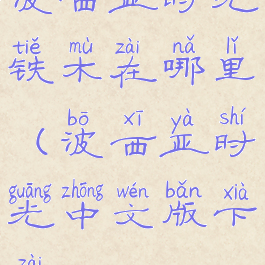 tiě mù zài nǎ lǐ
铁木在哪里
bō xī yà shí
（波西亚时
guāng zhōng wén bǎn xià
光中文版下
zài